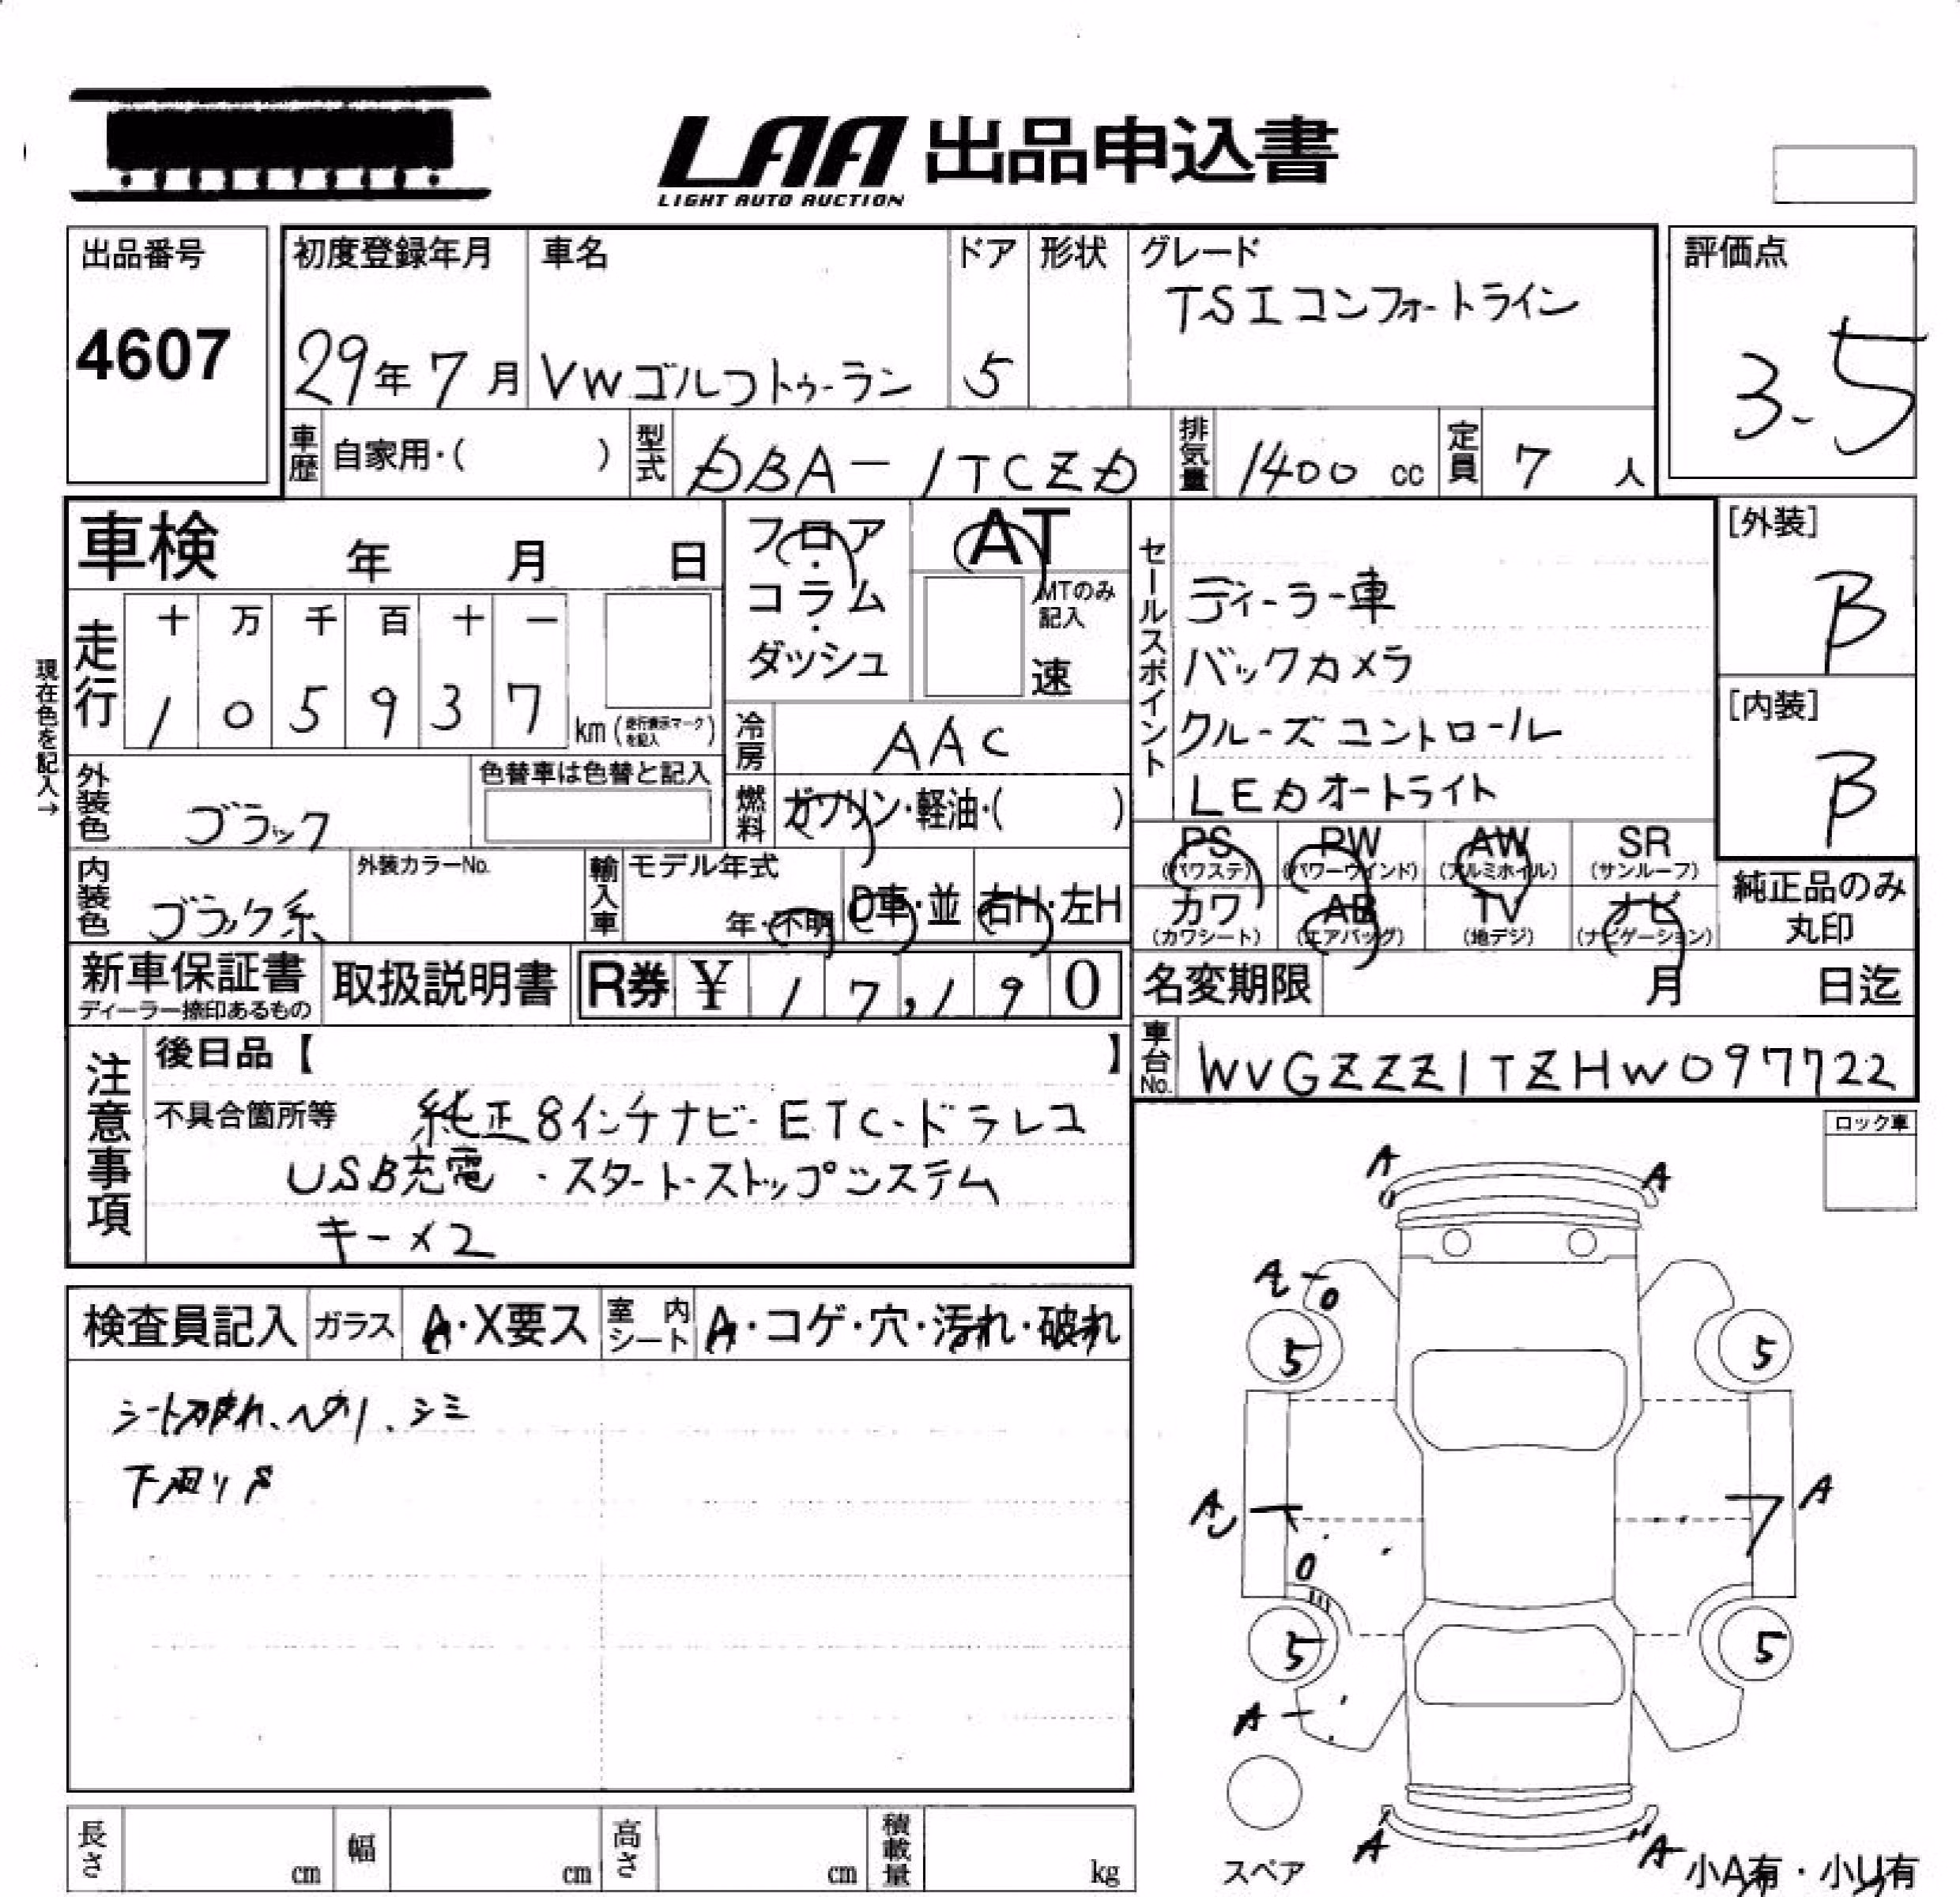 LAA 出品申込書
LIGHT AUTO AUCTION
出品番号
4607
初度登録年月
29年 7月
車名
VWゴルフトゥーラン
ドア
5
形状
グレード
TSIコンフォートライン
評価点
3.5
車歴
自家用・( )
型式
DBA-1TCZD
排気量
1400 cc
定員
7 人
車検 年 月 日
フロア・コラム・ダッシュ
AT
MTのみ記入
速
セールスポイント
ディーラー車
バックカメラ
クルーズコントロール
LEDオートライト
[外装]
B
[内装]
B
現在色を記入→
走行
十 万 千 百 十 一
1 0 5 9 3 7
km (走行表示マークを記入)
冷房
AAC
外装色
ブラック
色替車は色替と記入
燃料
ガソリン・軽油・( )
PS (パワステ)
PW (パワーウインド)
AW (アルミホイル)
SR (サンルーフ)
カワ (カワシート)
AB (エアバッグ)
TV (地デジ)
ナビ (ナビゲーション)
純正品のみ
丸印
内装色
ブラック系
外装カラーNo.
輸入車
モデル年式
年・不明
D車・並
右H・左H
新車保証書
ディーラー捺印あるもの
取扱説明書
R券 ¥ 17,190
名変期限 月 日迄
車台No.
WVGZZZ1TZHW097722
注意事項
後日品【 】
不具合箇所等 純正8インチナビ・ETC・ドラレコ
USB充電・スタート・ストップシステム
キー×2
ロック車
検査員記入
ガラス
A・X要ス
室内シート
A・コゲ・穴・汚れ・破れ
シート破れ、ヘタリ、シミ
下回りS
A
A
A
5
5
A
A
5
5
A
A
A
スペア
小A有・小U有
長さ cm
幅 cm
高さ cm
積載量 kg